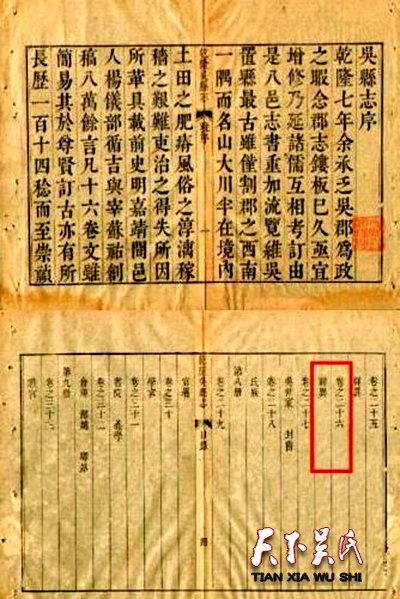 吳縣志序
乾隆七年余承乏吳郡爲政
之暇念郡志鏤板已久亟宜
增修乃延諸儒互相考訂由
是八邑志書重加流覽維吳
置縣最古雖僅割郡之西南
一隅而名山大川半在境內
土田之肥瘠風俗之淳漓稼
穡之艱難吏治之得失所因
所革具載前史明嘉靖間邑
人楊儀部循吉與宰蘇祐創
稿八萬餘言凡十六卷文雖
簡易其於尊賢訂古亦有所
長歷一百十四稔而至崇禎
卷之二十五
卷之二十六
卷之二十七
吳世家 封爵
卷之二十八
氏族
第八册
卷之二十九
乾隆吳縣志 目錄
卷之三十
學宮
卷之三十一
書院 義學
卷之三十二
第九册
卷之三十三
天下吴氏
TIAN XIA WU SHI